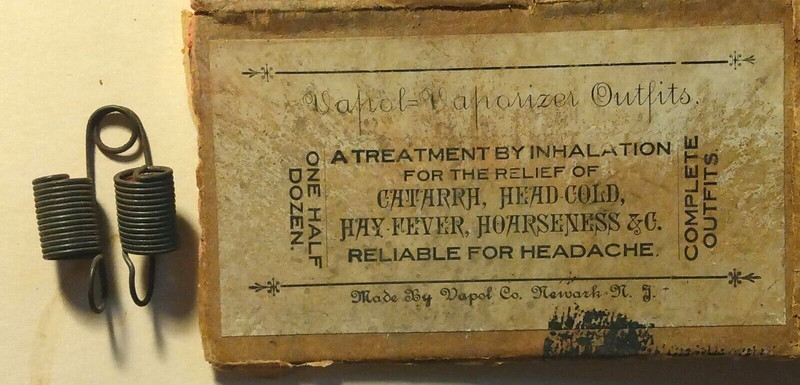 Vapol=Vaporizer Outfits.
ONE HALF
DOZEN.
A TREATMENT BY INHALATION
FOR THE RELIEF OF
CATARRH, HEAD-COLD,
HAY-FEVER, HOARSENESS &C.
RELIABLE FOR HEADACHE.
COMPLETE
OUTFITS.
Made By Vapol Co. Newark N. J.